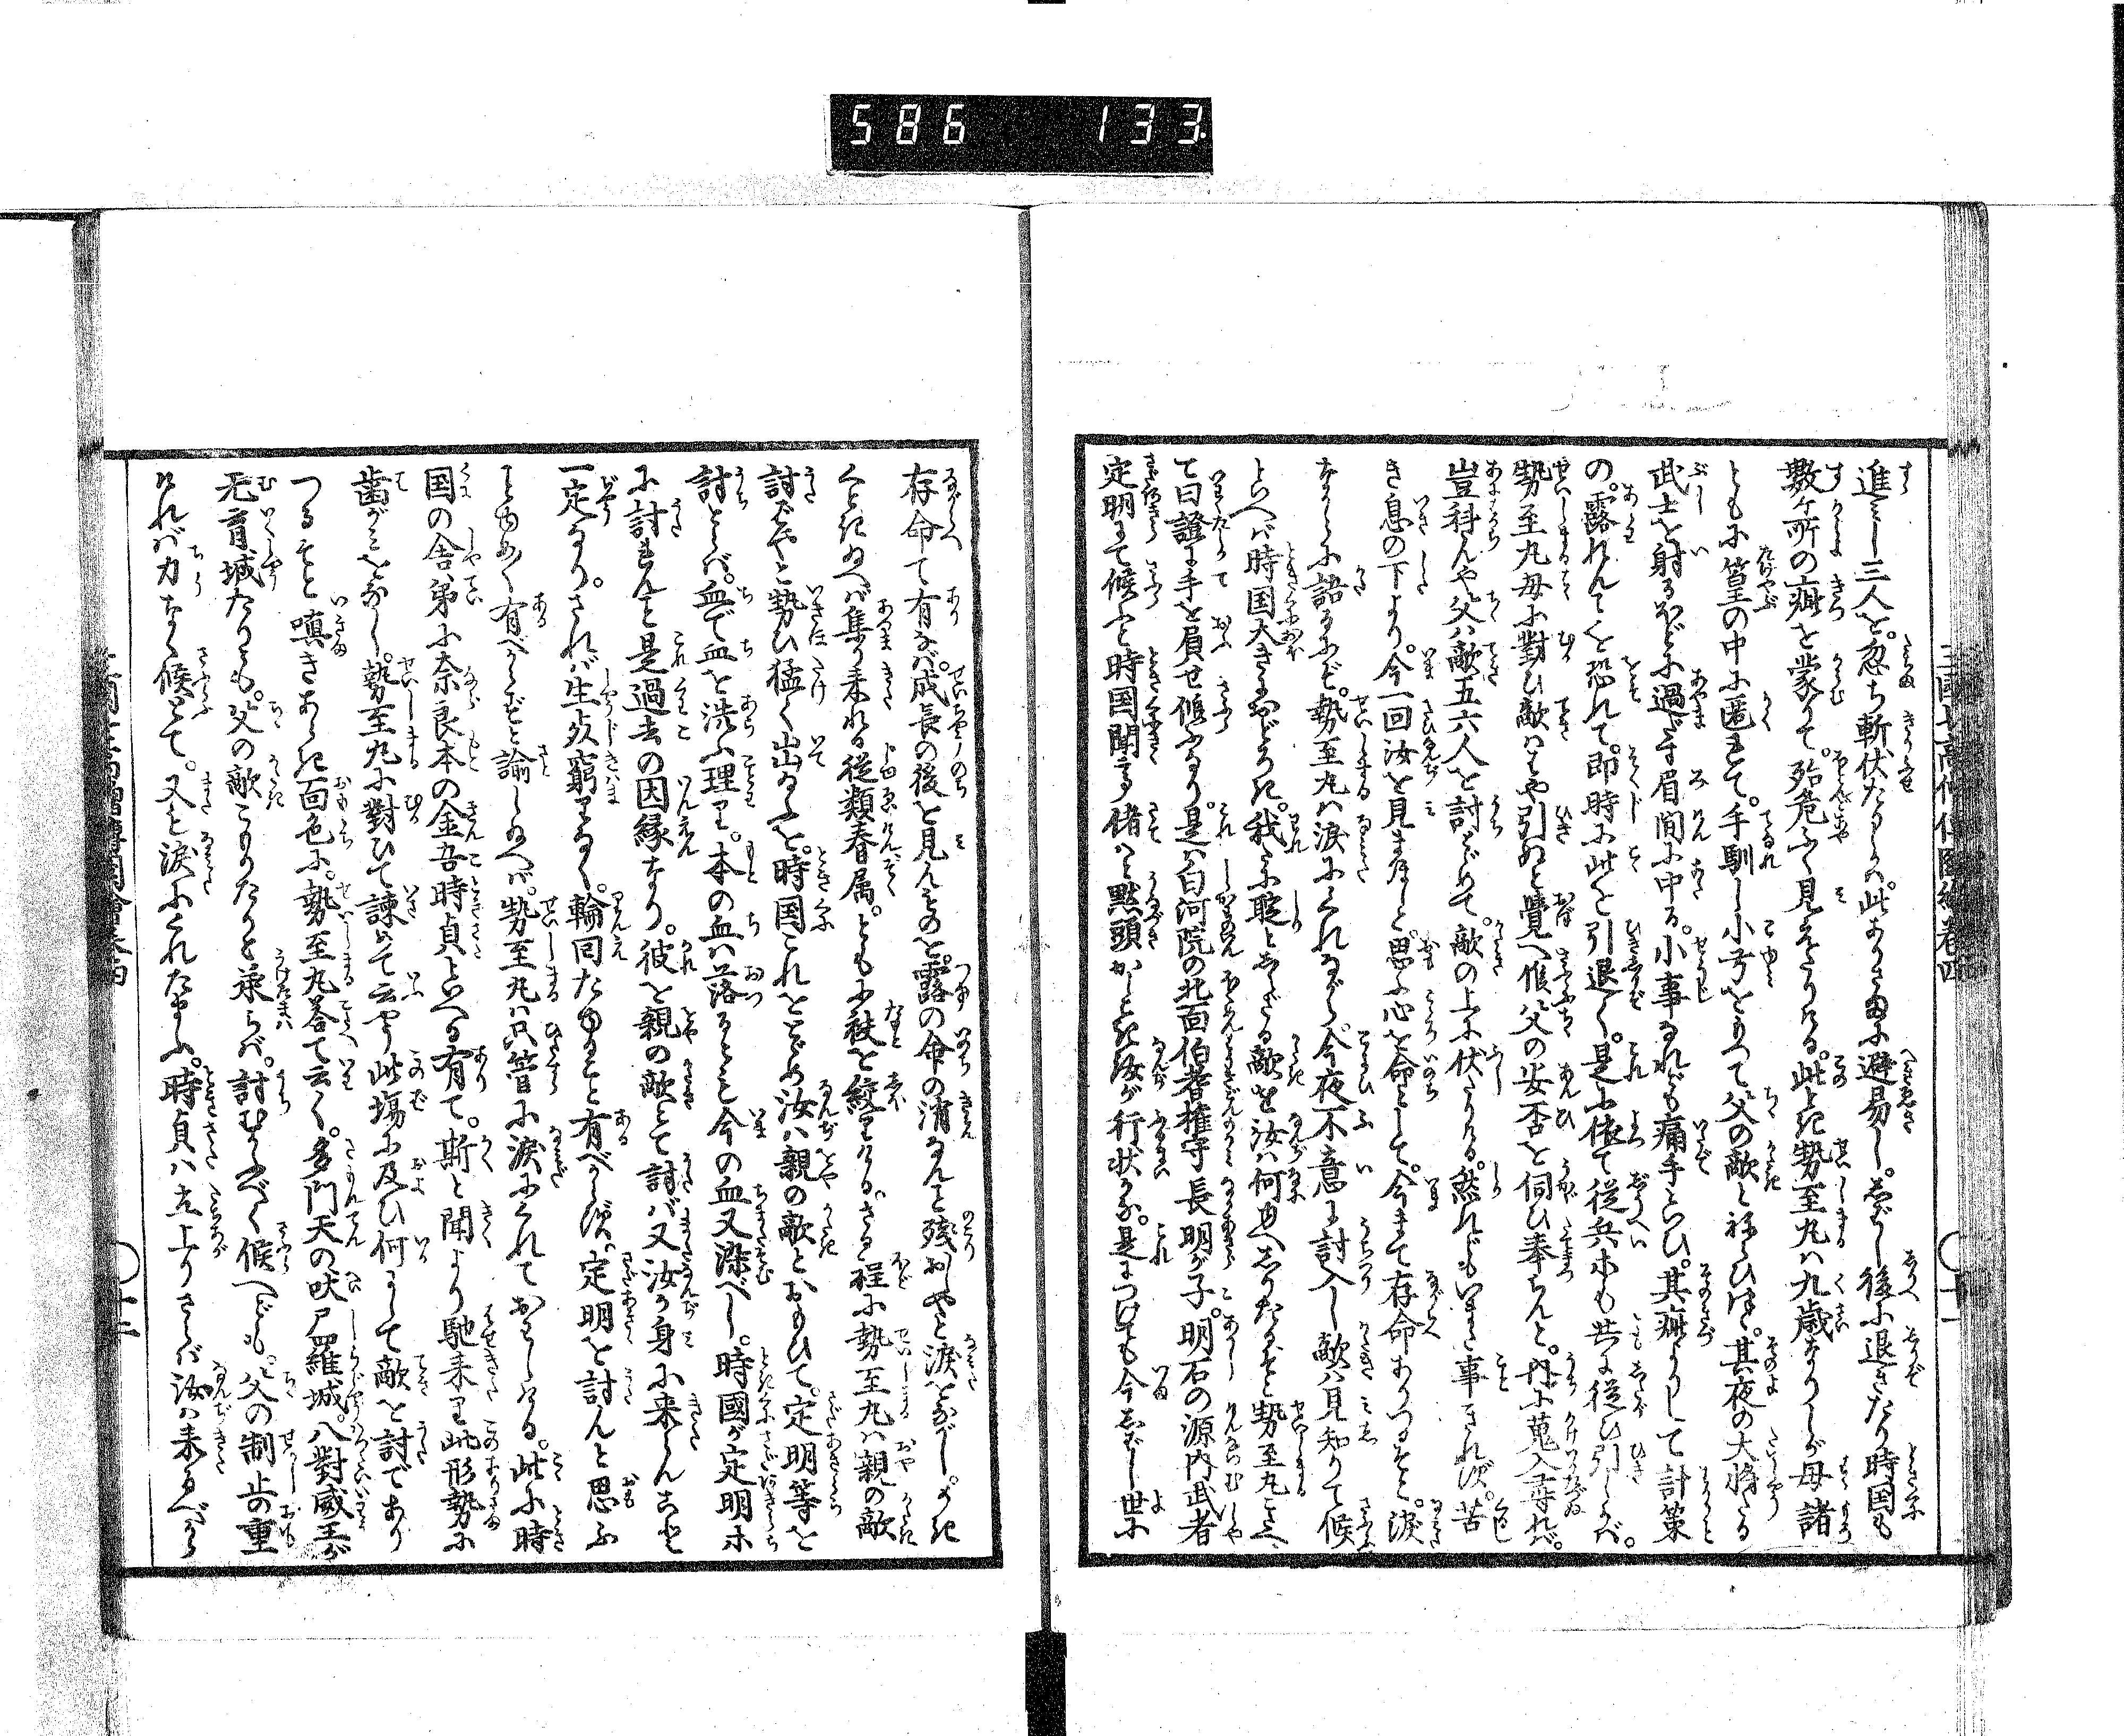 586 133
進みし三人を。忽ち斬伏たりしかば。此ありさまに避易し。しばし後に退きたり時国も
数ヶ所の疵を蒙りて。殆危ふく見えたりける。此とき勢至丸ハ九歳なりしが母諸
ともに篁の中に匿れて。手馴し小弓をもつて父の敵と祢らひけれバ。其夜の大将たる
武士を射るほどに過たず眉間に中る。小事なれども痛手といひ。其疵よりして計策
の。露れんことを恐れて。即時に此を引退く。是に依て従兵ホも共に従ひ引しかバ。
勢至丸母に對ひ敵ハはや引ぬと覺へ候父の安否を伺ひ奉らんと。内に蒐入尋れバ。
豈科んや父ハ敵五六人を討とゞめて。敵の上に伏たりける。然れどもいまだ事きれず。苦
き息の下より。今一回汝を見まほしと。思ふ心を命として。今まで存命ありつるぞと。涙
ながらに語るにぞ。勢至丸ハ涙にくれながら。今夜不意に討入し敵ハ見知りて候
といへバ時国大きにおどろき。我さへ聢としらざる敵を汝ハ何ゆへしりたるぞと勢至丸こたへ
て曰證に手を負せ候ふなり。是ハ白河院の北面伯耆権守長明が子。明石の源内武者
定明にて候ふと時国聞て偖ハと黙頭かしこき汝が行状かな。是につけても今しばし世に
存命て有ならバ。成長の後を見んものを。露の命の消なんこと残おしやと涙をながし。かき
くどき給へバ集り来れる従類眷属。ともに袂を絞りける。さる程に勢至丸ハ親の敵
討ばやと勢ひ猛く出なふを。時国これをとゞめ汝ハ親の敵とおもひて。定明等を
討とらバ。血で血を洗ふ理にて。本の血ハ落るとも今の血又染べし。時國が定明ホ
に討るゝこと是過去の因縁なり。彼を親の敵とて討バ又汝が身に来らんこと
一定なり。されバ生死窮りなく。輪回たゆること有べからず。定明を討んと思ふ
ことゆめゆめ有べからずと諭し給へバ。勢至丸ハ只管に涙にくれておわしける。此に時
国の舎弟に奈良本の金吾時貞といへる有て。斯と聞より馳来り此形勢に
歯がミをなし。勢至丸に對ひて諫めて云やう此塲に及ひ何にして敵を討であり
つるぞと嗔きあらき面色に。勢至丸答て云く。多門天の吠尸羅城。八對威王が
无育城たりとも。父の敵こもりたりと承らバ。討むかふべく候へども。父の制止の重
けれバ力なく候とて。又も涙にくれたまふ。時貞ハ立上りさらバ汝ハ来るべから